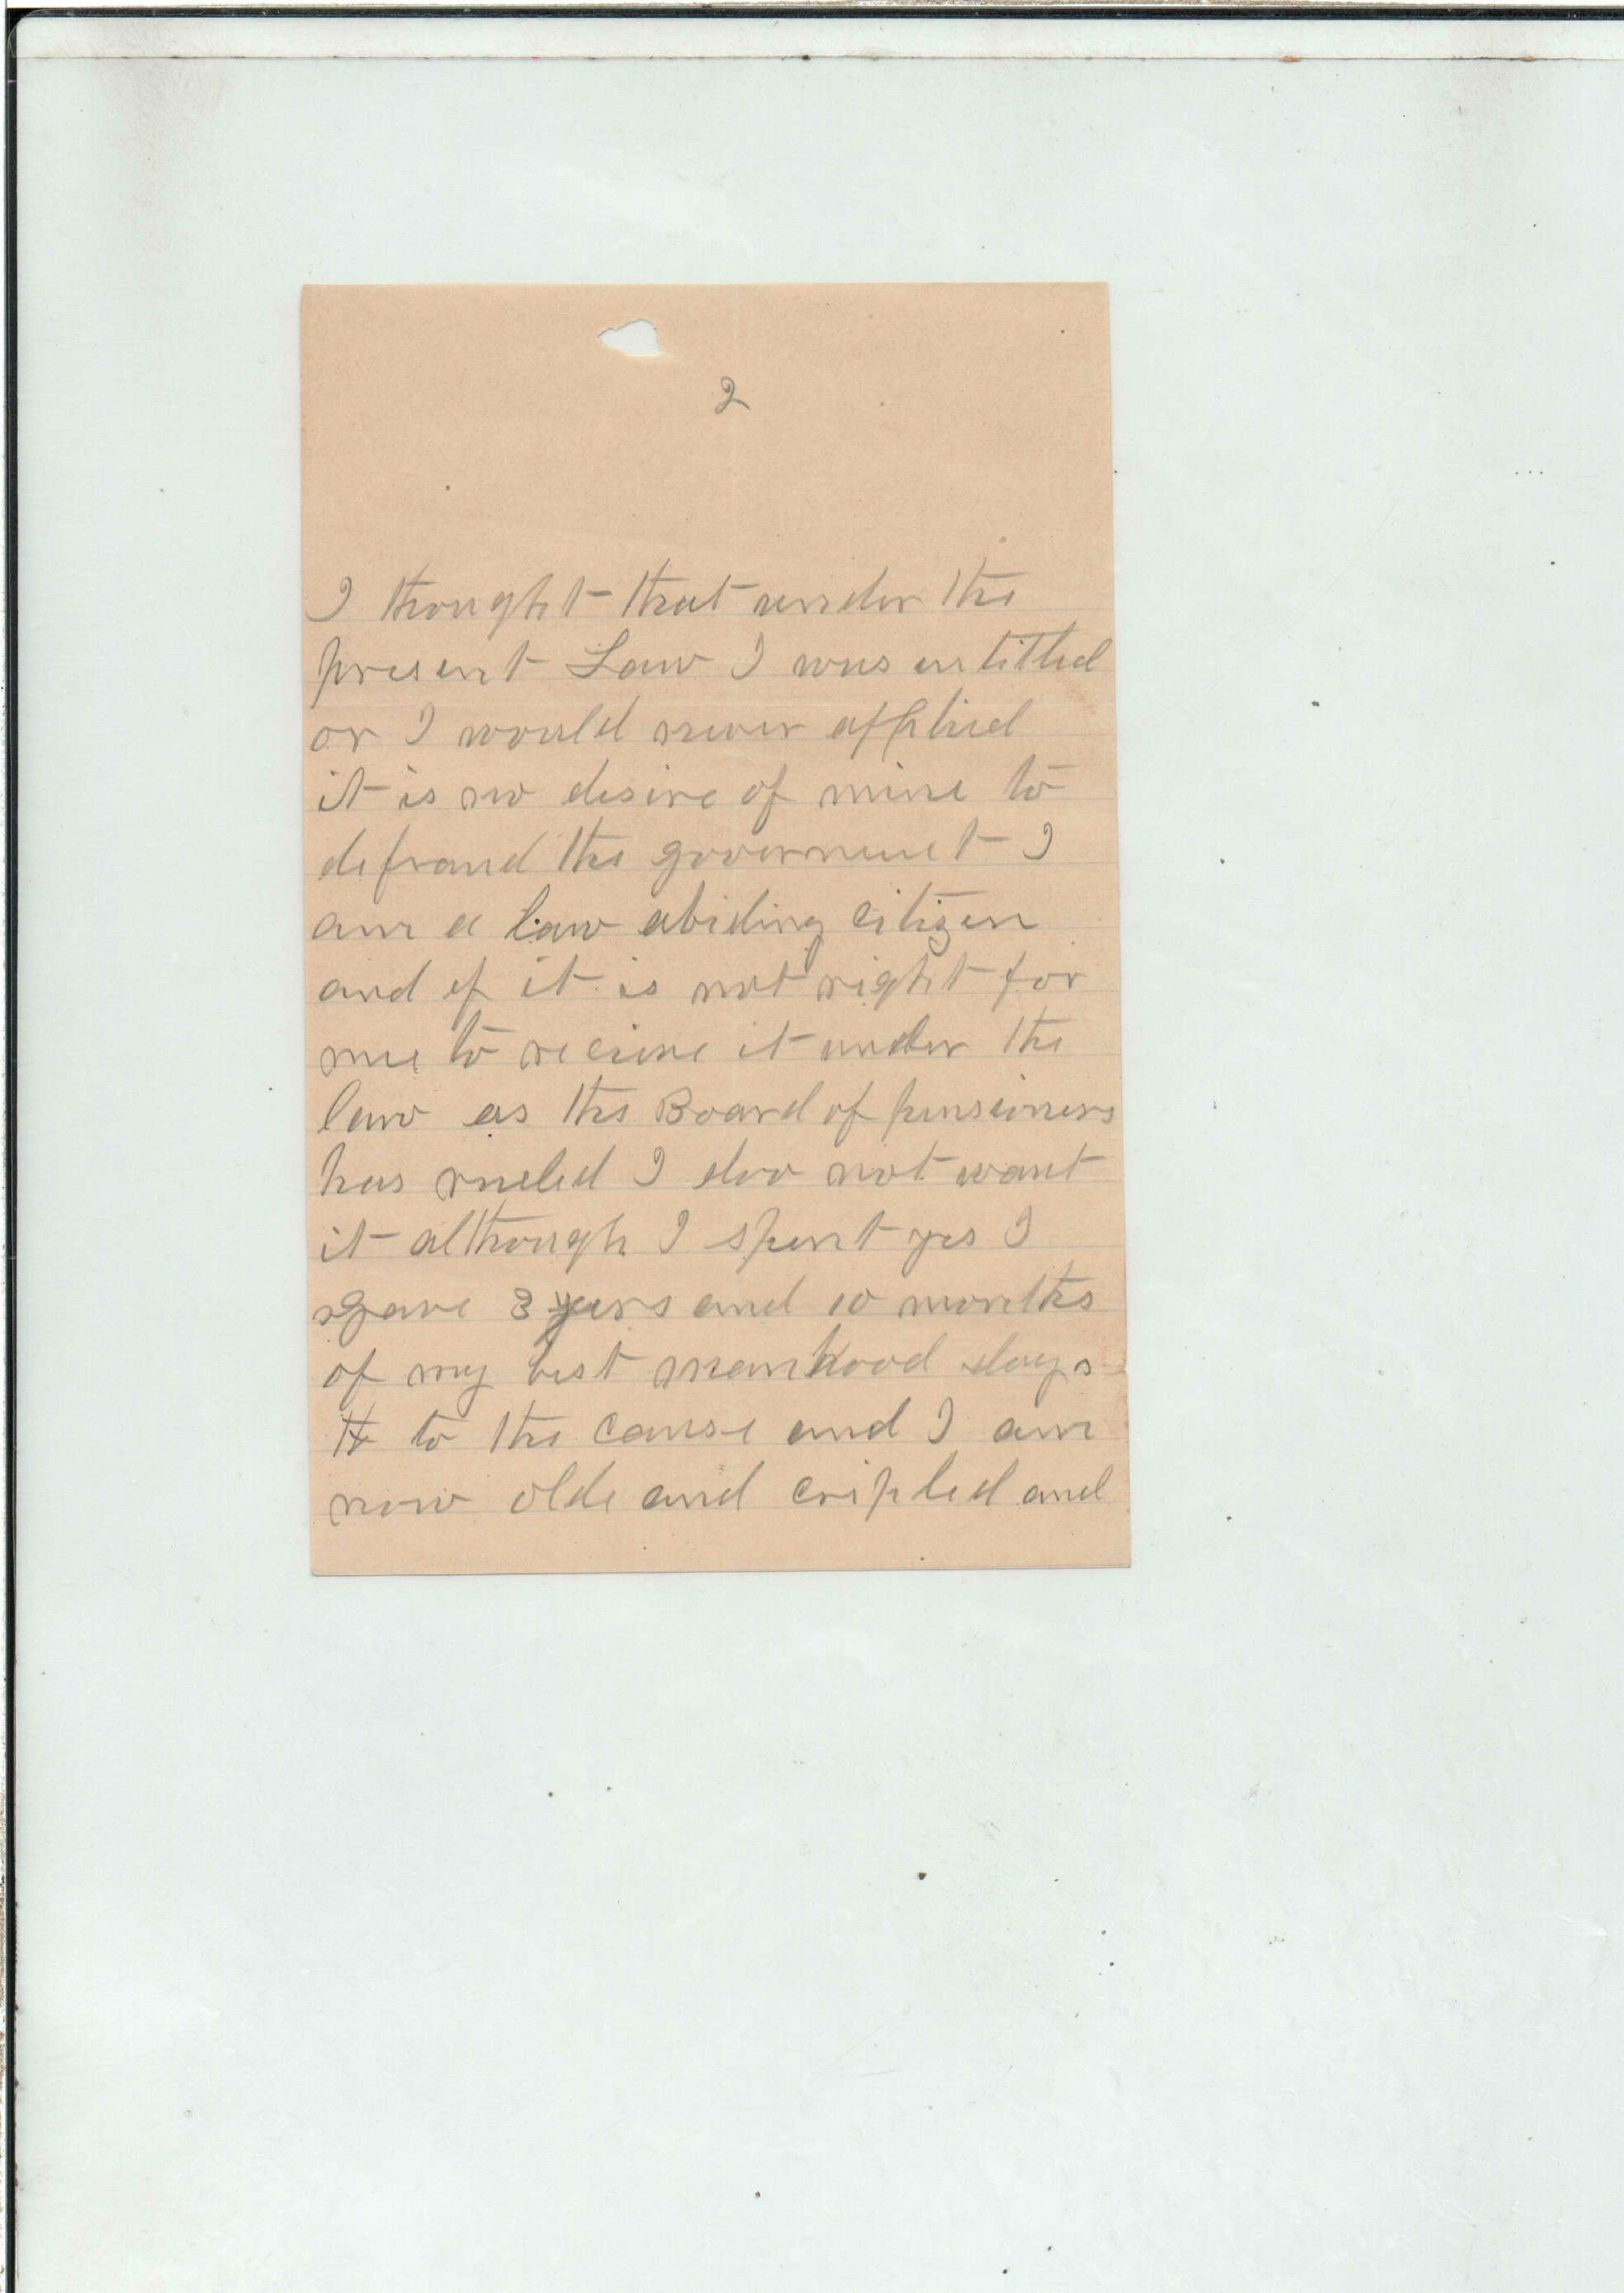 2
I thought that under the
present Law I was entitled
or I would never applied
it is no desire of mine to
defraud the government I
am a law abiding citizen
and if it is not right for
me to recieve it under the
law as the Board of pensioners
has ruled I doo not want
it although I spent yes I
gave 3 years and 10 months
of my best manhood days
to the cause and I am
now olde and cripled and